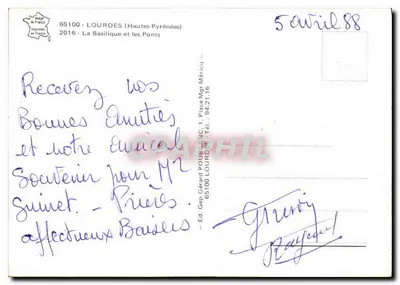 65100 - LOURDES (Hautes-Pyrénées)
2016 - La Basilique et les Ponts
5 avril 88
Recevez nos
Bonnes Amitiés
et notre amical
Souvenir pour Mr
- Prières.
affectueux Baisers
- Ed. Gep Gérard 1, Place Mgr Méricq -
65100 LOURDES - Tél. : 94.21.16